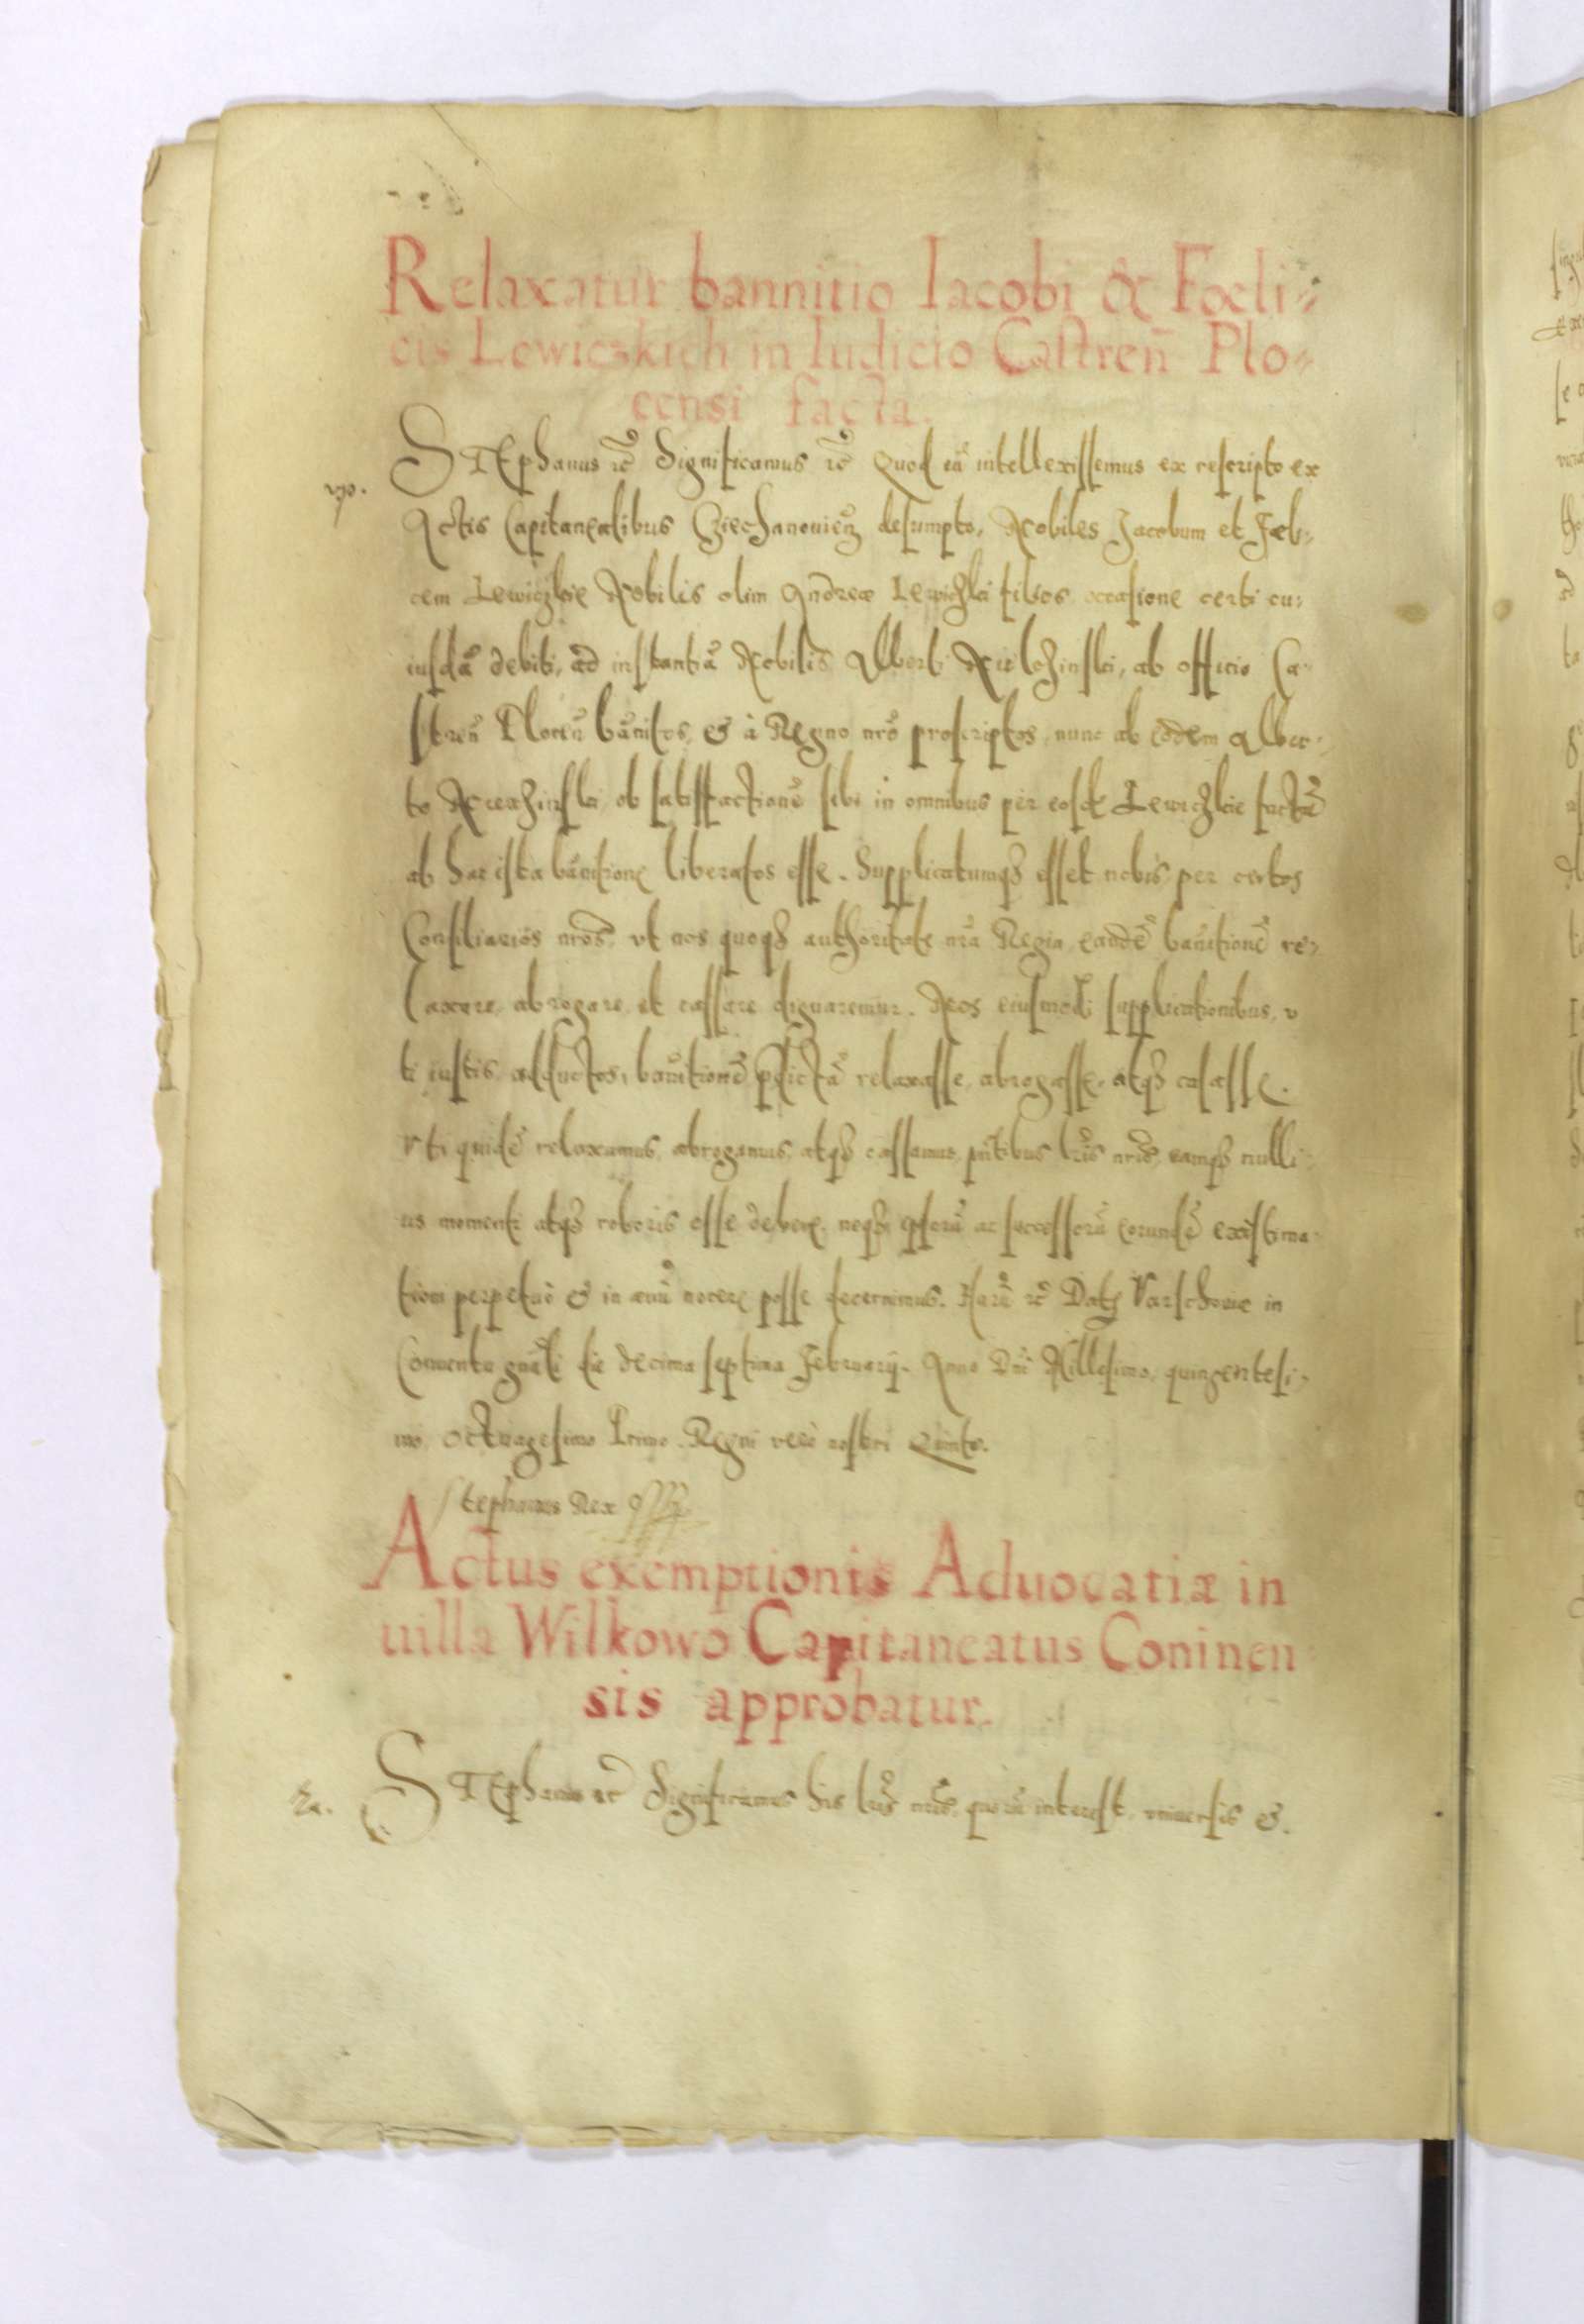 Relaxatur bannitio Iacobi & Fœli-
cis Lewiczkich in Iudicio Castren̄ Plo-
censi facta.
STEphanus rc̃ Significamus rc̃ Quod cũ intellexissemus ex rescripto ex
vp.
Actis Capitanealibus Cziechanouien̄ desumpto, Nobiles Jacobum et Fœli-
cem Lewiczkie Nobilis olim Andreæ Lewiczki filios occasione certi cu-
iusdã debiti, ad instantiã Nobilis Alberti ab officio Ca-
stren̄ Plocen̄ bãnitos, & à Regno nr̃o proscriptos, nunc ab eodem Alber-
to ob satisfactionẽ sibi in omnibus per eosdẽ Lewiczkie factã
ab hac ista bãnitione liberatos esse. Supplicatumq́ esset nobis per certos
Consiliarios nr̃os, vt nos quoq́ authoritate nr̃a Regia eandẽ bãnitionẽ re-
laxare abrogare et cassare dignaremur. Nos eiusmodi supplicationibus, v
ti iustis adductos, bãnitionẽ p̃dictã relaxasse, abrogasse, atq́ casasse.
Vti quidẽ relaxamus, abrogamus, atq́ cassamus pn̄tibus lr̃is nr̃is, eamq́ nulli-
us momenti atq́ roboris esse debere, neq́ ipsorũ ac successorũ eorundẽ existima-
tioni perpetuò & in æuũ nocere posse decernimus. Harũ rc̃ Dat Varschouie in
Conuentu gn̄ali die decima septima Februarij. Anno Dn̄i Millesimo, quingentesi-
mo, Octuagesimo Primo. Regni verò nostri Quinto.
Stephanus Rex
Actus exemptionis Aduocatiæ in
uilla Wilkowo Capitaneatus Coninen
sis approbatur.
STEphanus rc̃ Significamus his lr̃is nr̃is, quorũ interest, vniuersis &.